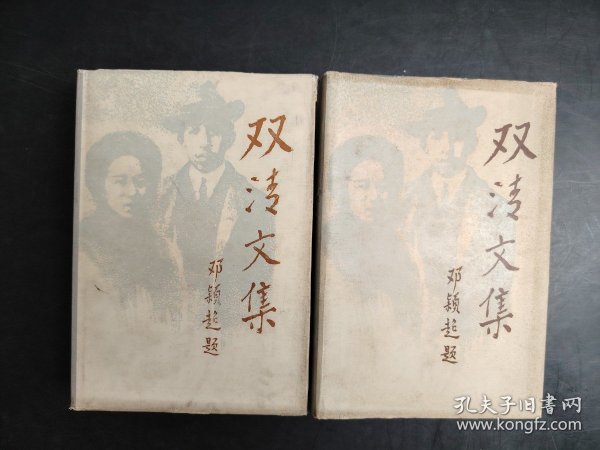 双清文集
邓颖超题
双清文集
邓颖超题
孔夫子旧书网
www.kongfz.com